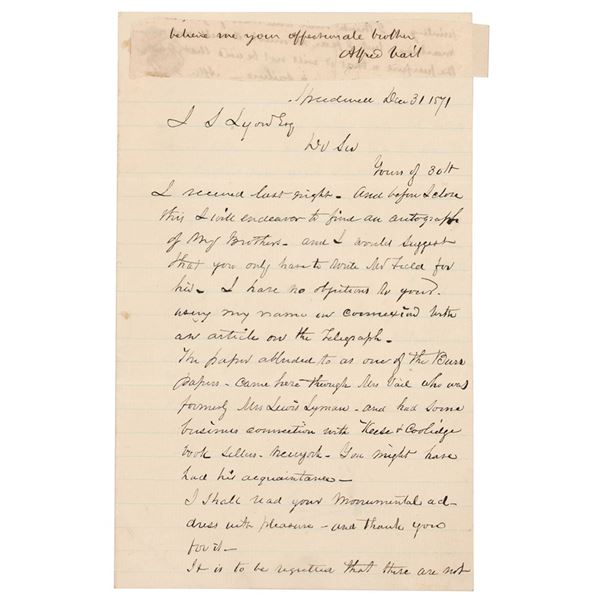 believe me your affectionate brother
Alfred Vail
Speedwell Dec 31 1871
J S Lyon Esq
Dr Sir
Yours of 30th
I received last night - And before I close
this I will endeavor to find an autograph
of My Brothers - and I would suggest
that you only have to write Mr Field for
his - I have no objections to your
using my name in connexion with
an article on the Telegraph -
The paper alluded to as one of the Burr
papers - came here through Mrs Vail who was
formerly Mrs Lewis Lyman - and had some
business connection with Keese & Coolidge
book Sellers - New York - You might have
had his acquaintance -
I shall read your Monumental ad-
dress with pleasure - and thank you
for it -
It is to be regretted that there are not